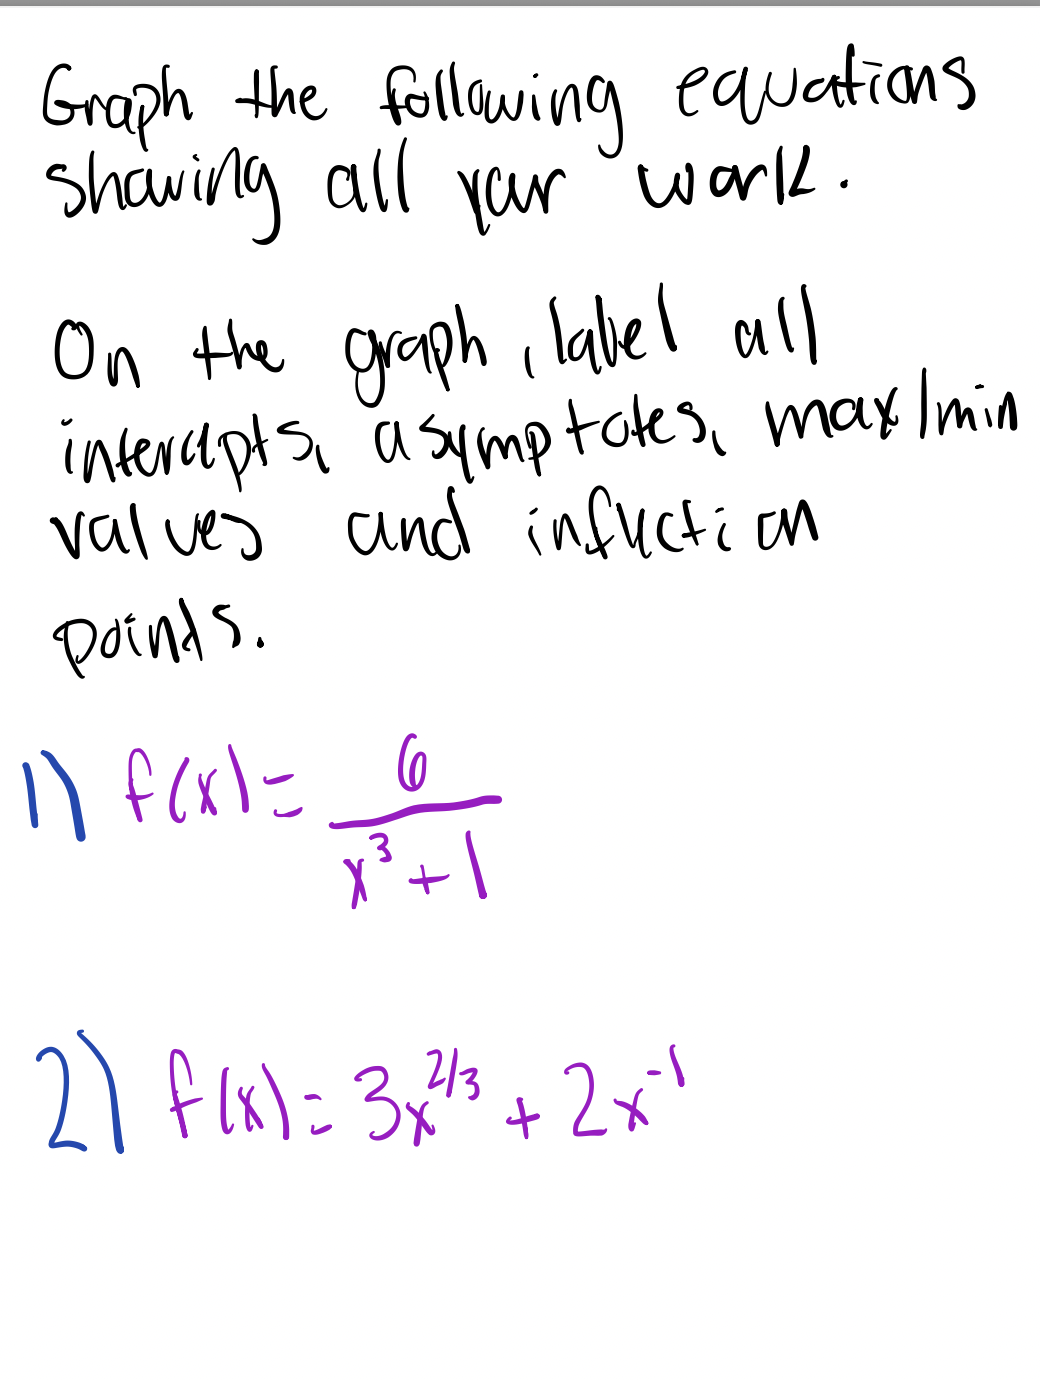 Graph the following equations
showing all your work.
On the graph, label all
intercepts, asymptotes, max/min
values and inflection
points.
1) f(x) = 6/(x³ + 1)
2) f(x) = 3x^(2/3) + 2x^(-1)